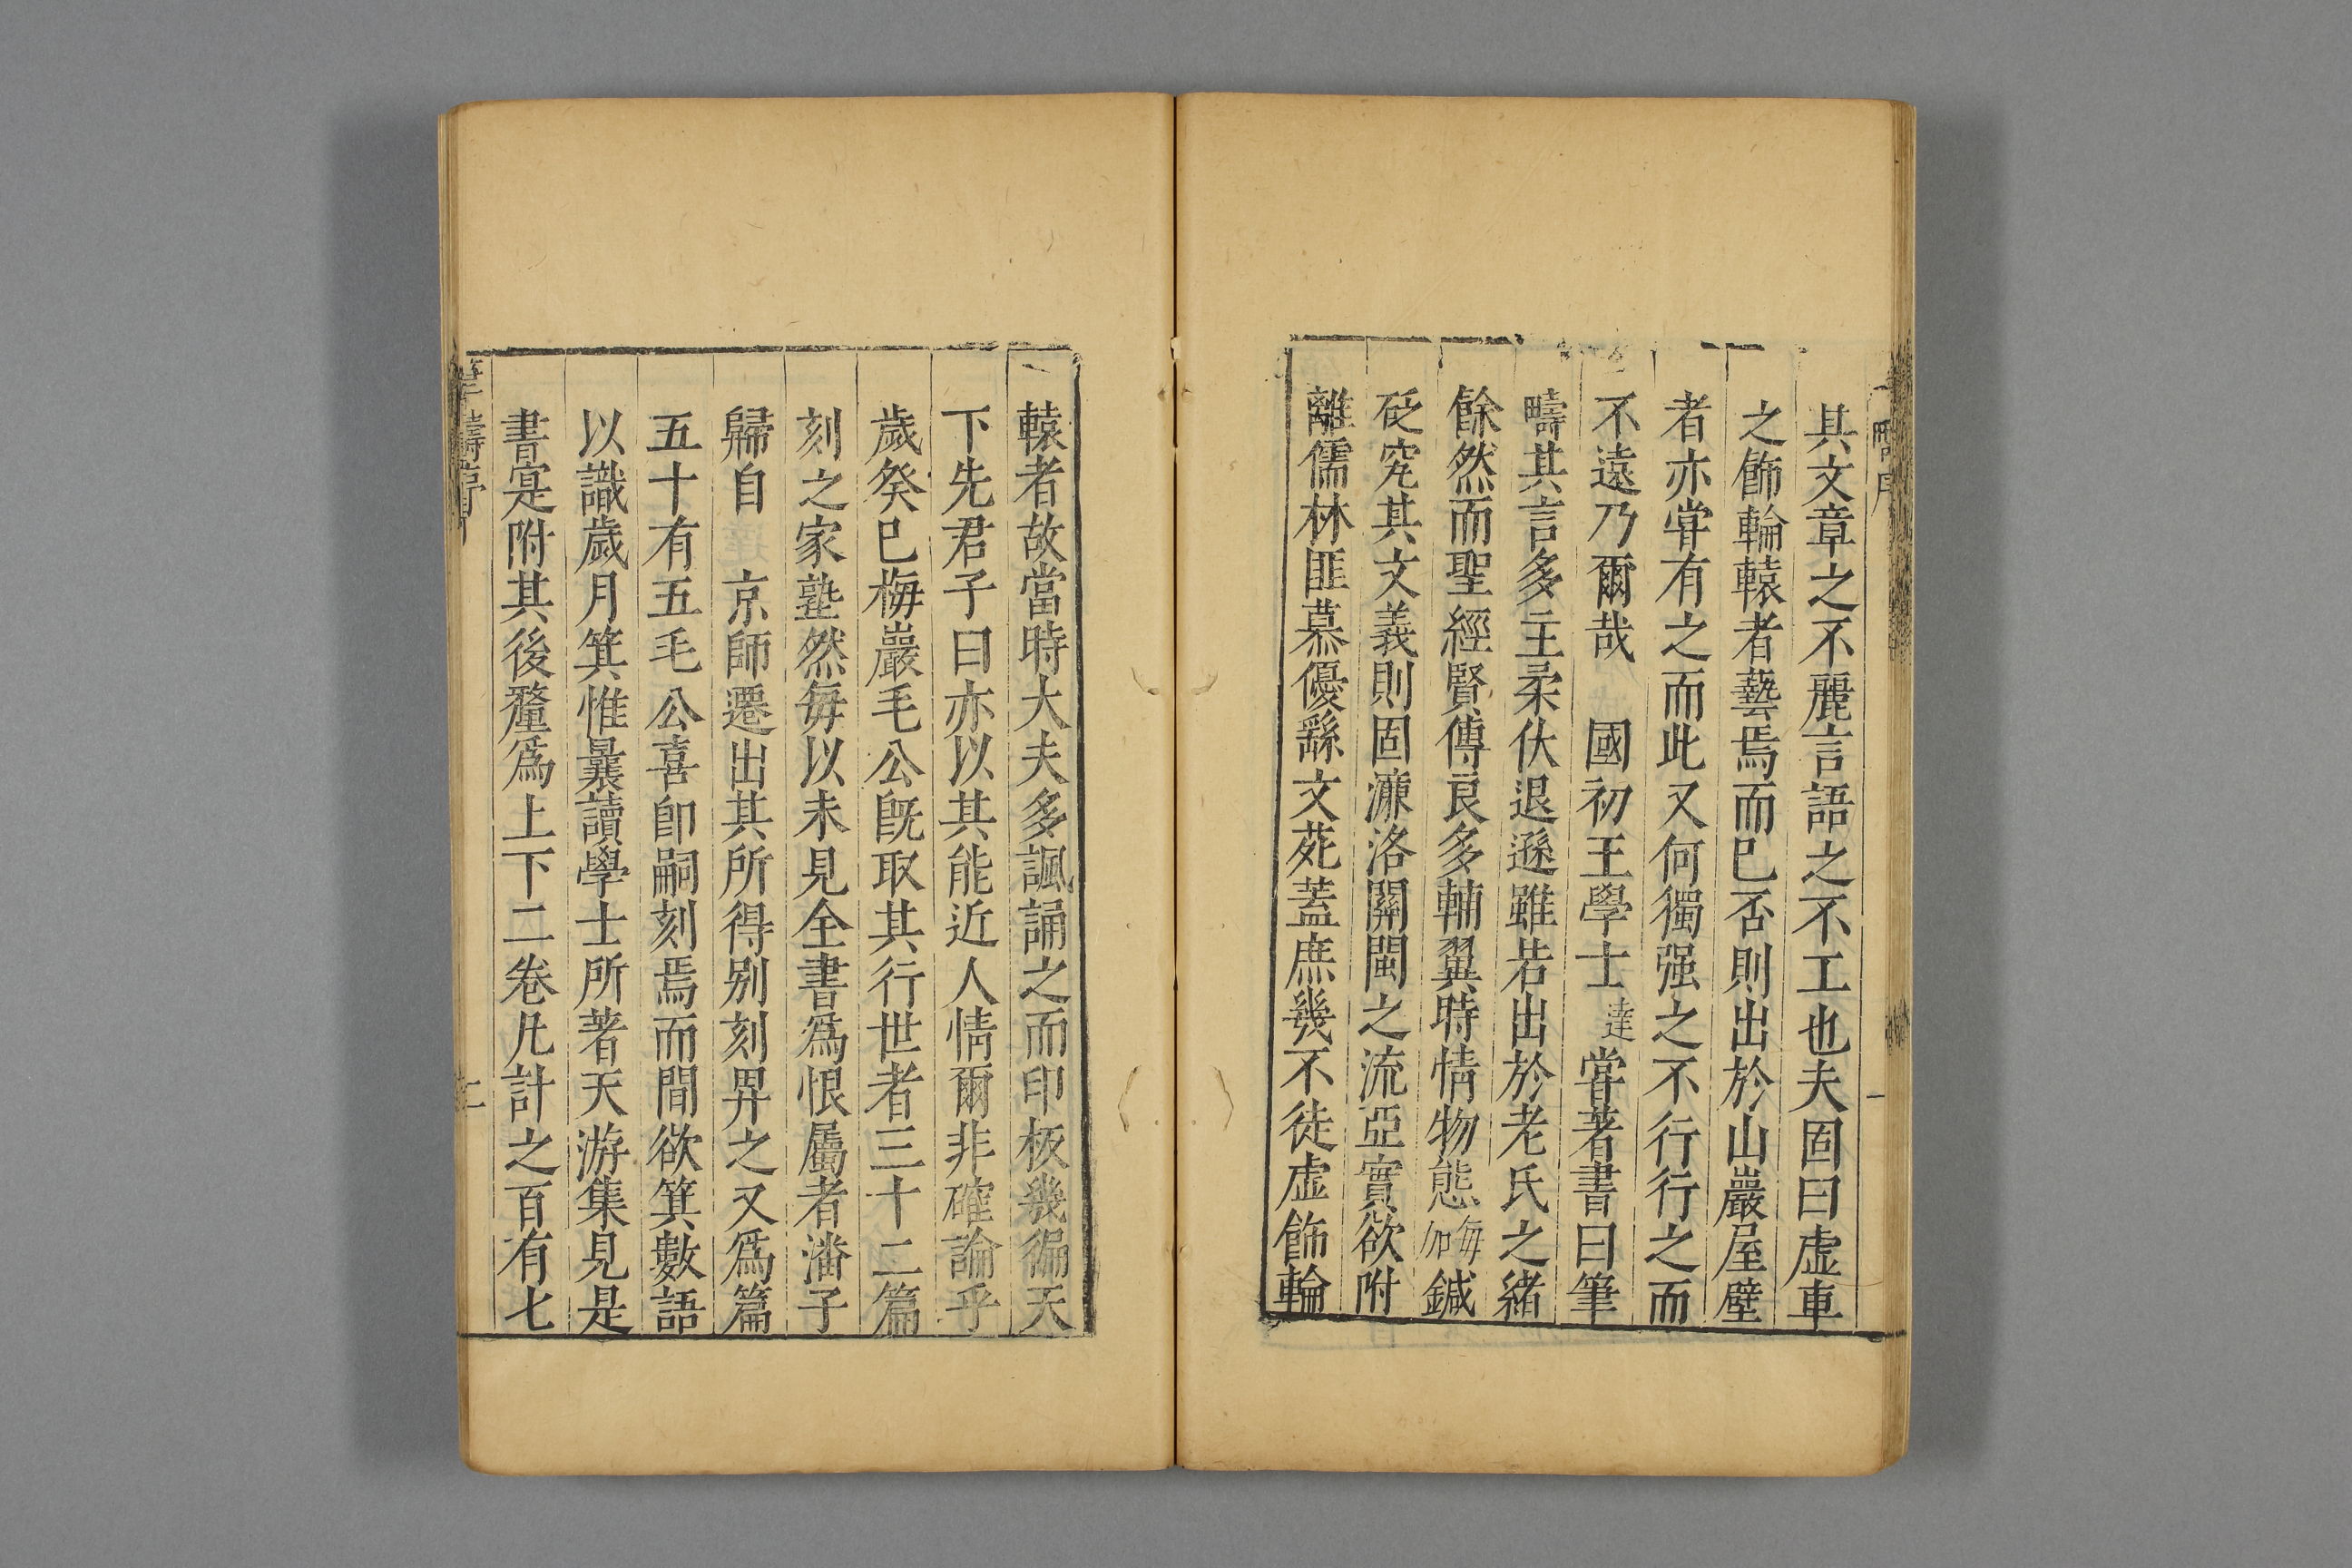 其文章之不麗言語之不工也夫固曰虛車
之飾輪轅者藝焉而已否則出於山巖屋壁
者亦甞有之而此又何獨强之不行行之而
不遠乃爾哉　國初王學士達甞著書曰筆
疇其言多主柔伏退遜雖若出於老氏之緒
餘然而聖經賢傳良多輔翼時情物態每加鍼
砭究其文義則固濂洛關閩之流亞實欲附
離儒林匪慕優繇文苑蓋庶幾不徒虛飾輪
轅者故當時大夫多諷誦之而印板幾徧天
下先君子曰亦以其能近人情爾非確論乎
歲癸巳梅巖毛公旣取其行世者三十二篇
刻之家塾然每以未見全書爲恨屬者潘子
歸自　京師遷出其所得別刻畀之又爲篇
五十有五毛公喜卽嗣刻焉而間欲箕數語
以識歲月箕惟曩讀學士所著天游集見是
書寔附其後釐爲上下二卷凡計之百有七
二